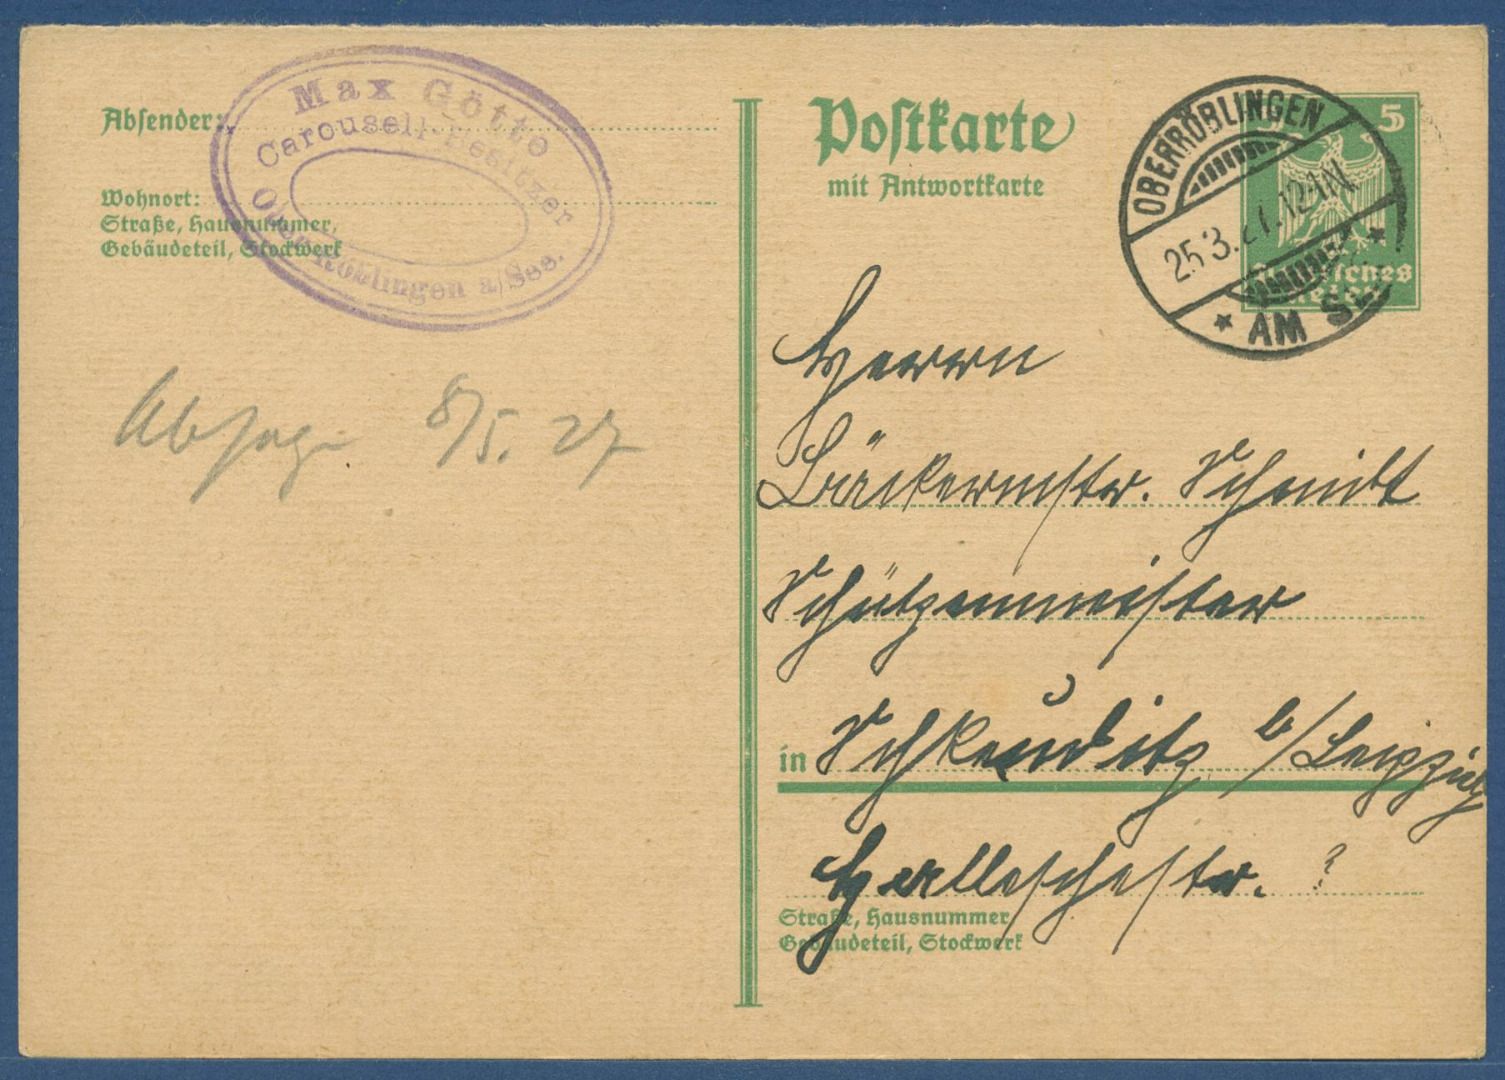 Absender:
Wohnort:
Straße, Hausnummer,
Gebäudeteil, Stockwerk
Max Götto
Carousell-Besitzer
Ober-Röblingen a/See.
Absage 8/5. 27
Postkarte
mit Antwortkarte
OBERRÖBLINGEN
25.3.27.12-1N
* AM SEE *
5
Deutsches
Reich
Herrn
Bäckermstr. Schmidt
Schützenmeister
in Schkeuditz b/Leipzig
Halleschestr. ?
Straße, Hausnummer
Gebäudeteil, Stockwerk